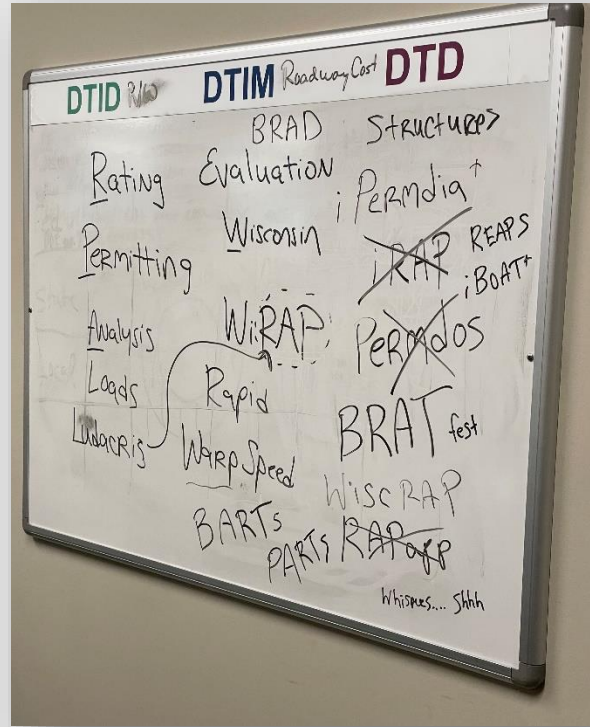 DTID R/W DTIM Roadway Cost DTD
BRAD
Structures
Rating
Evaluation
i Permdia+
Permitting
Wisconsin
iRAP
REAPS
iBOAT+
Analysis
WiRAP
Permdos
Loads
Rapid
Ludacris
Warp Speed
BRAT fest
WiscRAP
BARTs
PARTs
RAPapp
Whispers.... Shhh